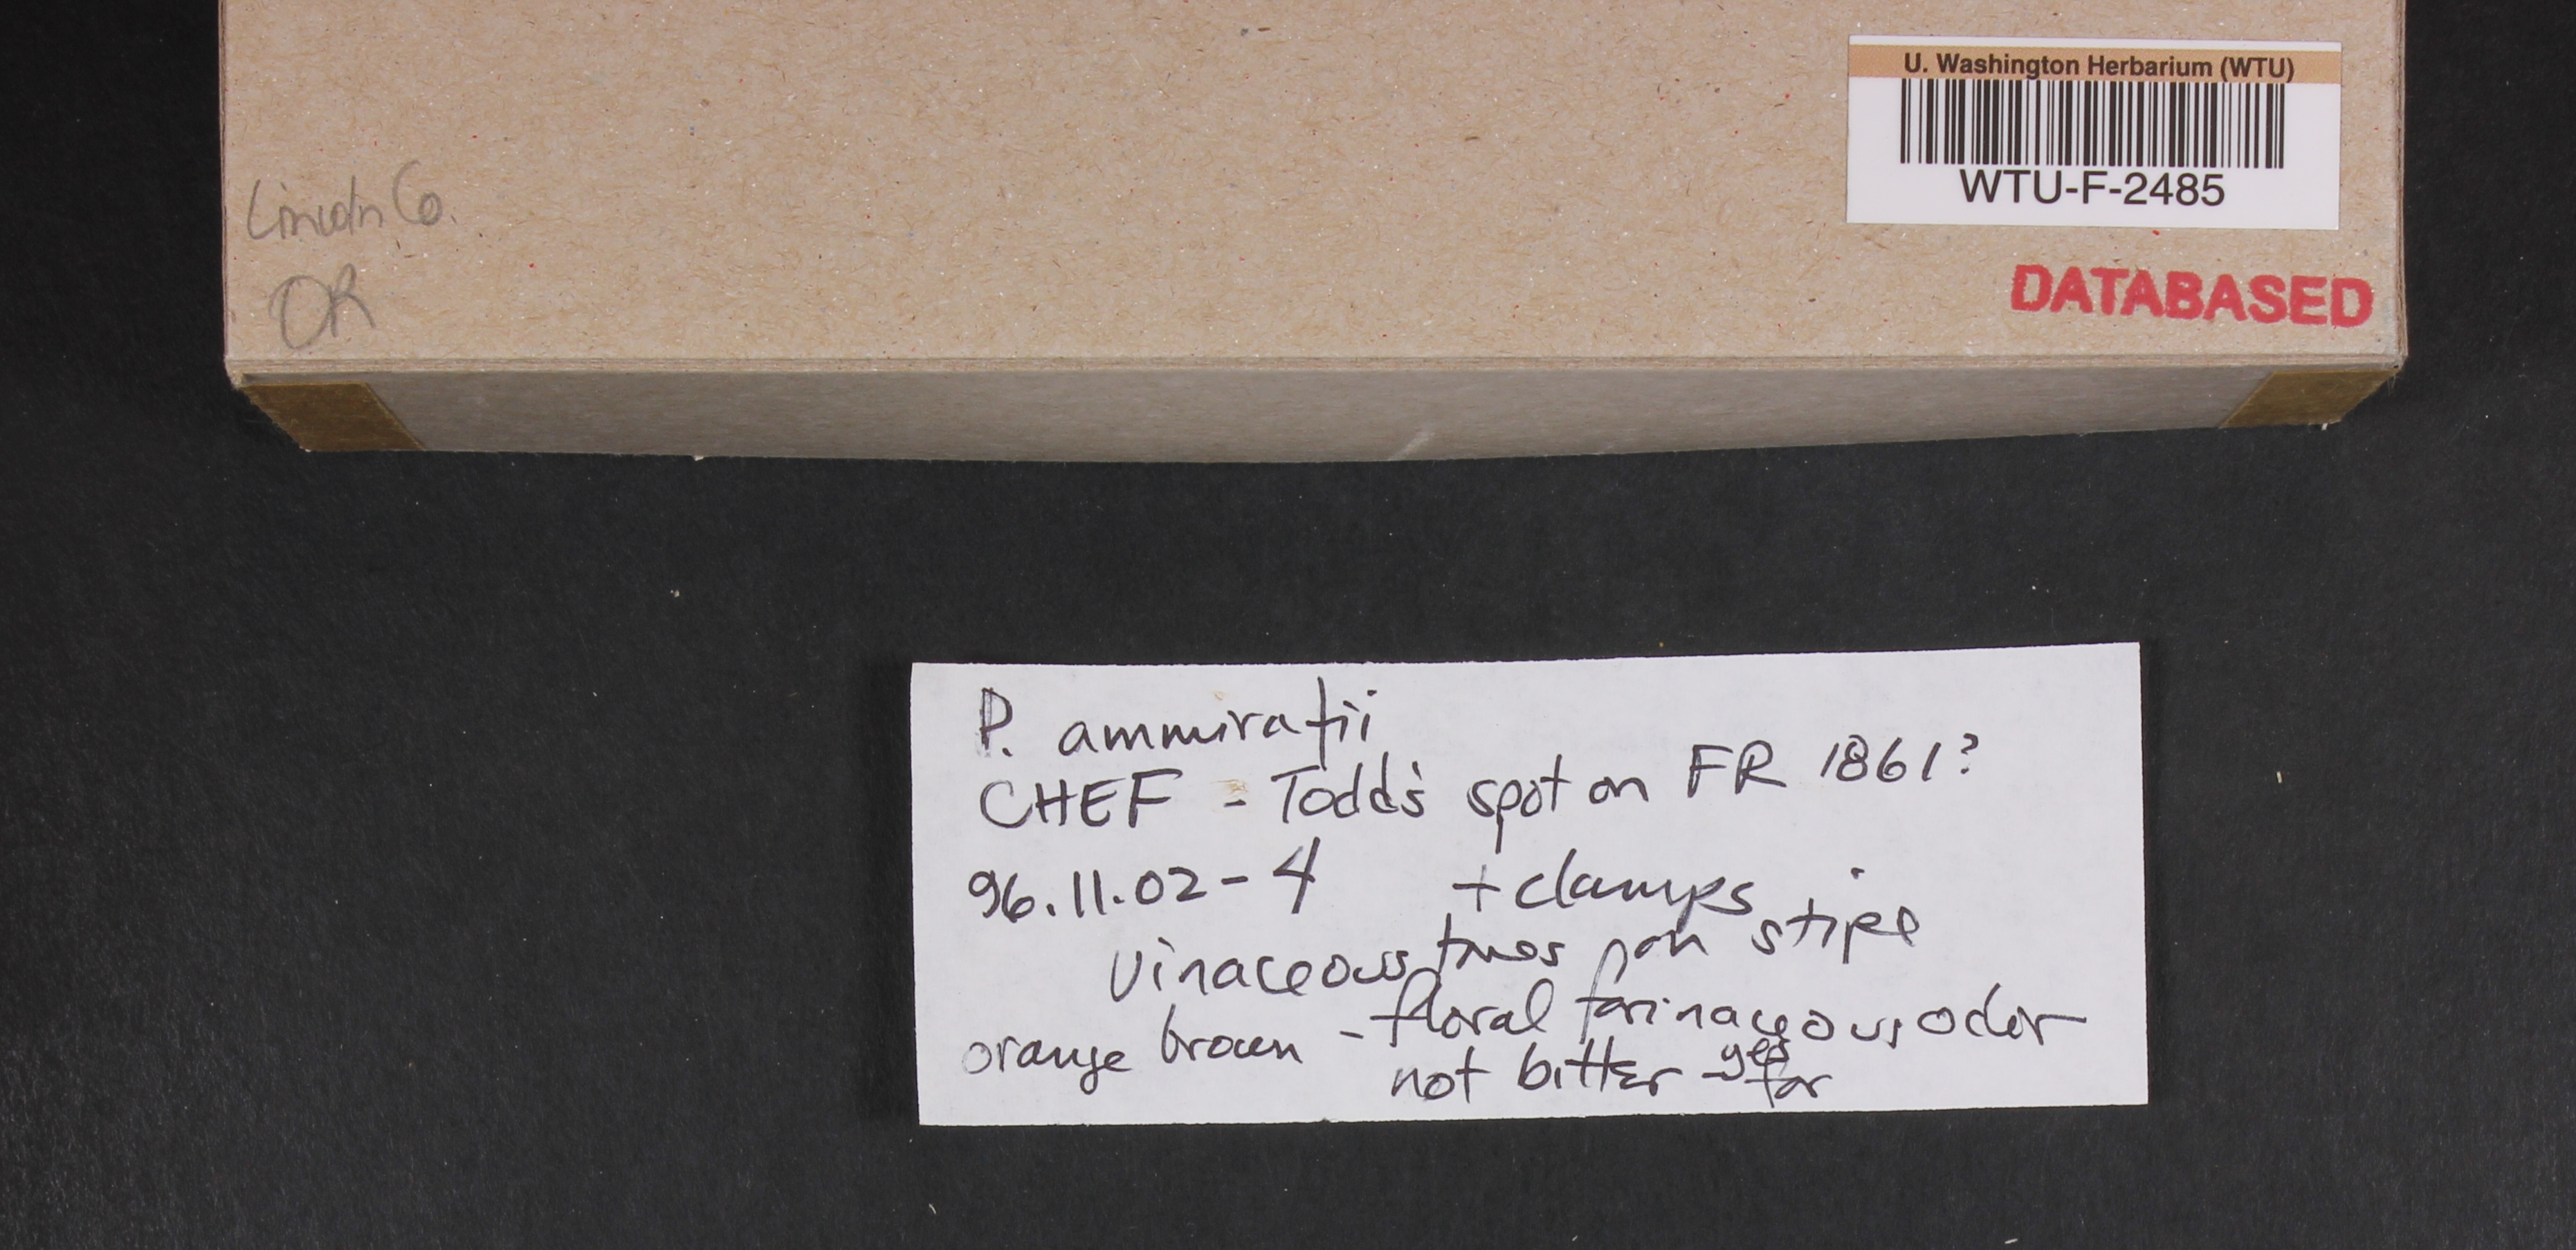 U. Washington Herbarium (WTU)
WTU-F-2485
Lincoln Co.
OR
DATABASED
P. ammiratii
CHEF - Todd's spot on FR 1861?
96.11.02-4 + clamps
vinaceous on stipe
orange brown - floral farinaceous odor
not bitter - yet